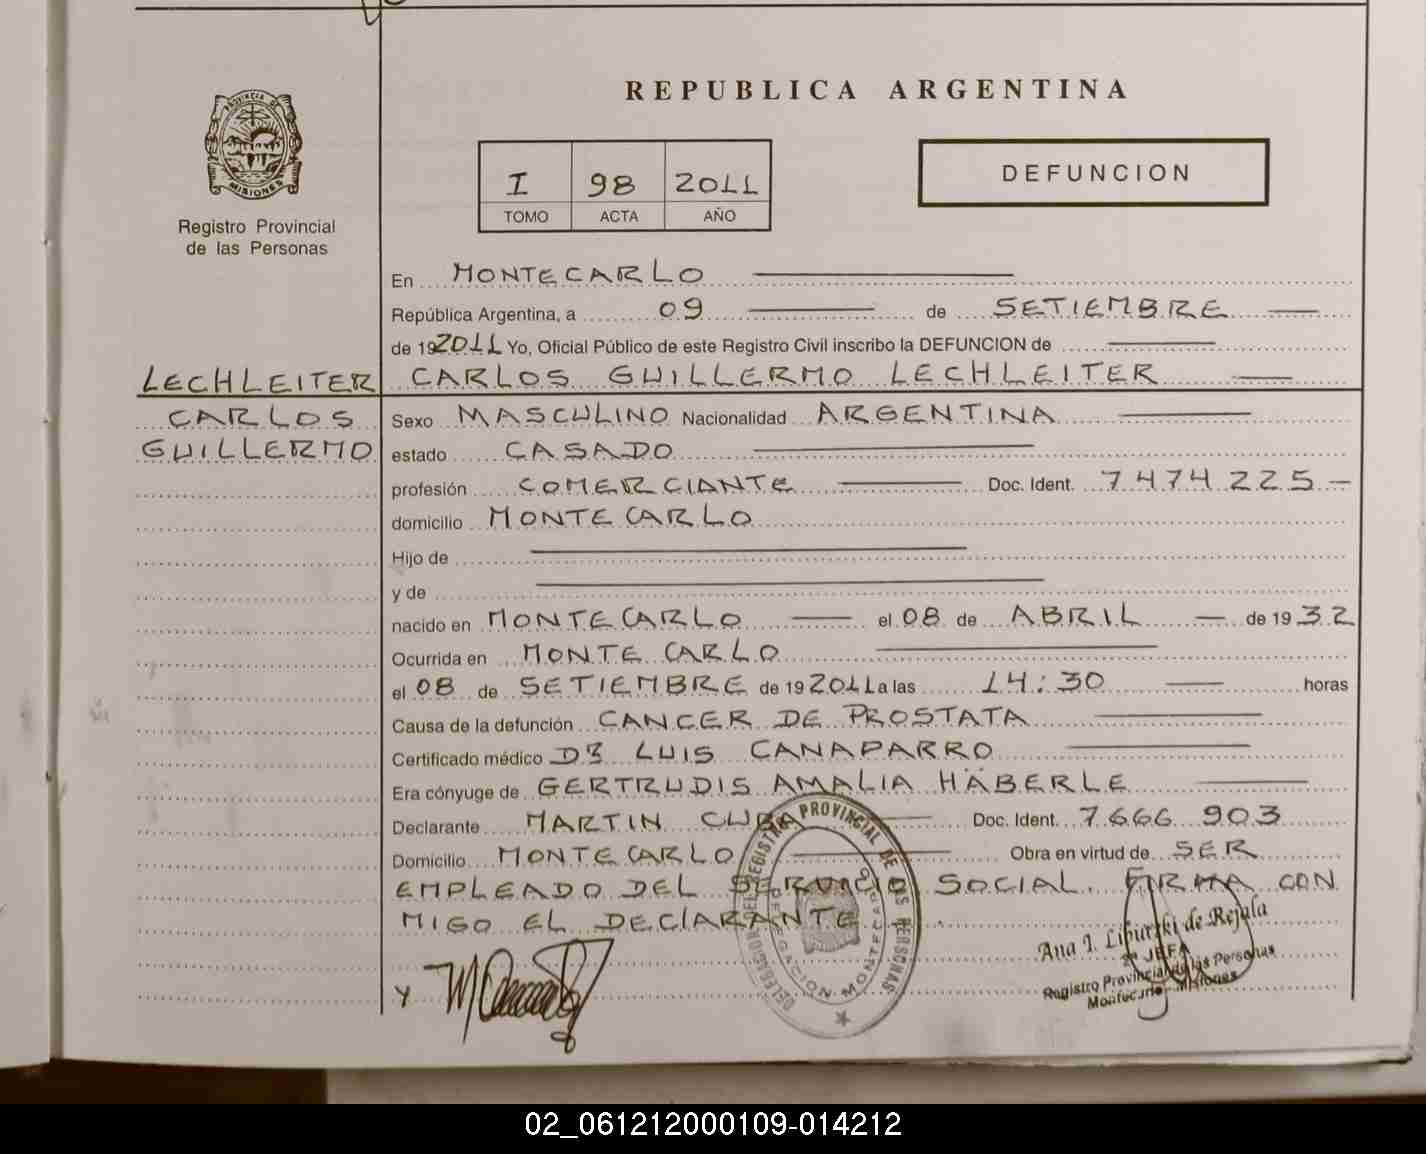 REPUBLICA ARGENTINA
PROVINCIA DE
MISIONES
Registro Provincial
de las Personas
I 98 2011
TOMO ACTA AÑO
DEFUNCION
En MONTECARLO
República Argentina, a 09 de SETIEMBRE
de 19 2011 Yo, Oficial Público de este Registro Civil inscribo la DEFUNCION de
LECHLEITER
CARLOS
GUILLERMO
CARLOS GUILLERMO LECHLEITER
Sexo MASCULINO Nacionalidad ARGENTINA
estado CASADO
profesión COMERCIANTE Doc. Ident. 7474225
domicilio MONTECARLO
Hijo de
y de
nacido en MONTECARLO el 08 de ABRIL de 19 32
Ocurrida en MONTE CARLO
el 08 de SETIEMBRE de 19 2011 a las 14:30 horas
Causa de la defunción CANCER DE PROSTATA
Certificado médico DR LUIS CANAPARRO
Era cónyuge de GERTRUDIS AMALIA HÄBERLE
Declarante MARTIN CUBA Doc. Ident. 7.666 903
Domicilio MONTECARLO Obra en virtud de SER
EMPLEADO DEL SERVICIO SOCIAL. FIRMA CON
MIGO EL DECLARANTE
DELEGACION DEL REGISTRO PROVINCIAL DE LAS PERSONAS
DELEGACION MONTECARLO
Ana I. Lipurski de Rejala
2ª JEFA
Registro Provincial de las Personas
Montecarlo - Misiones
Y
02_061212000109-014212